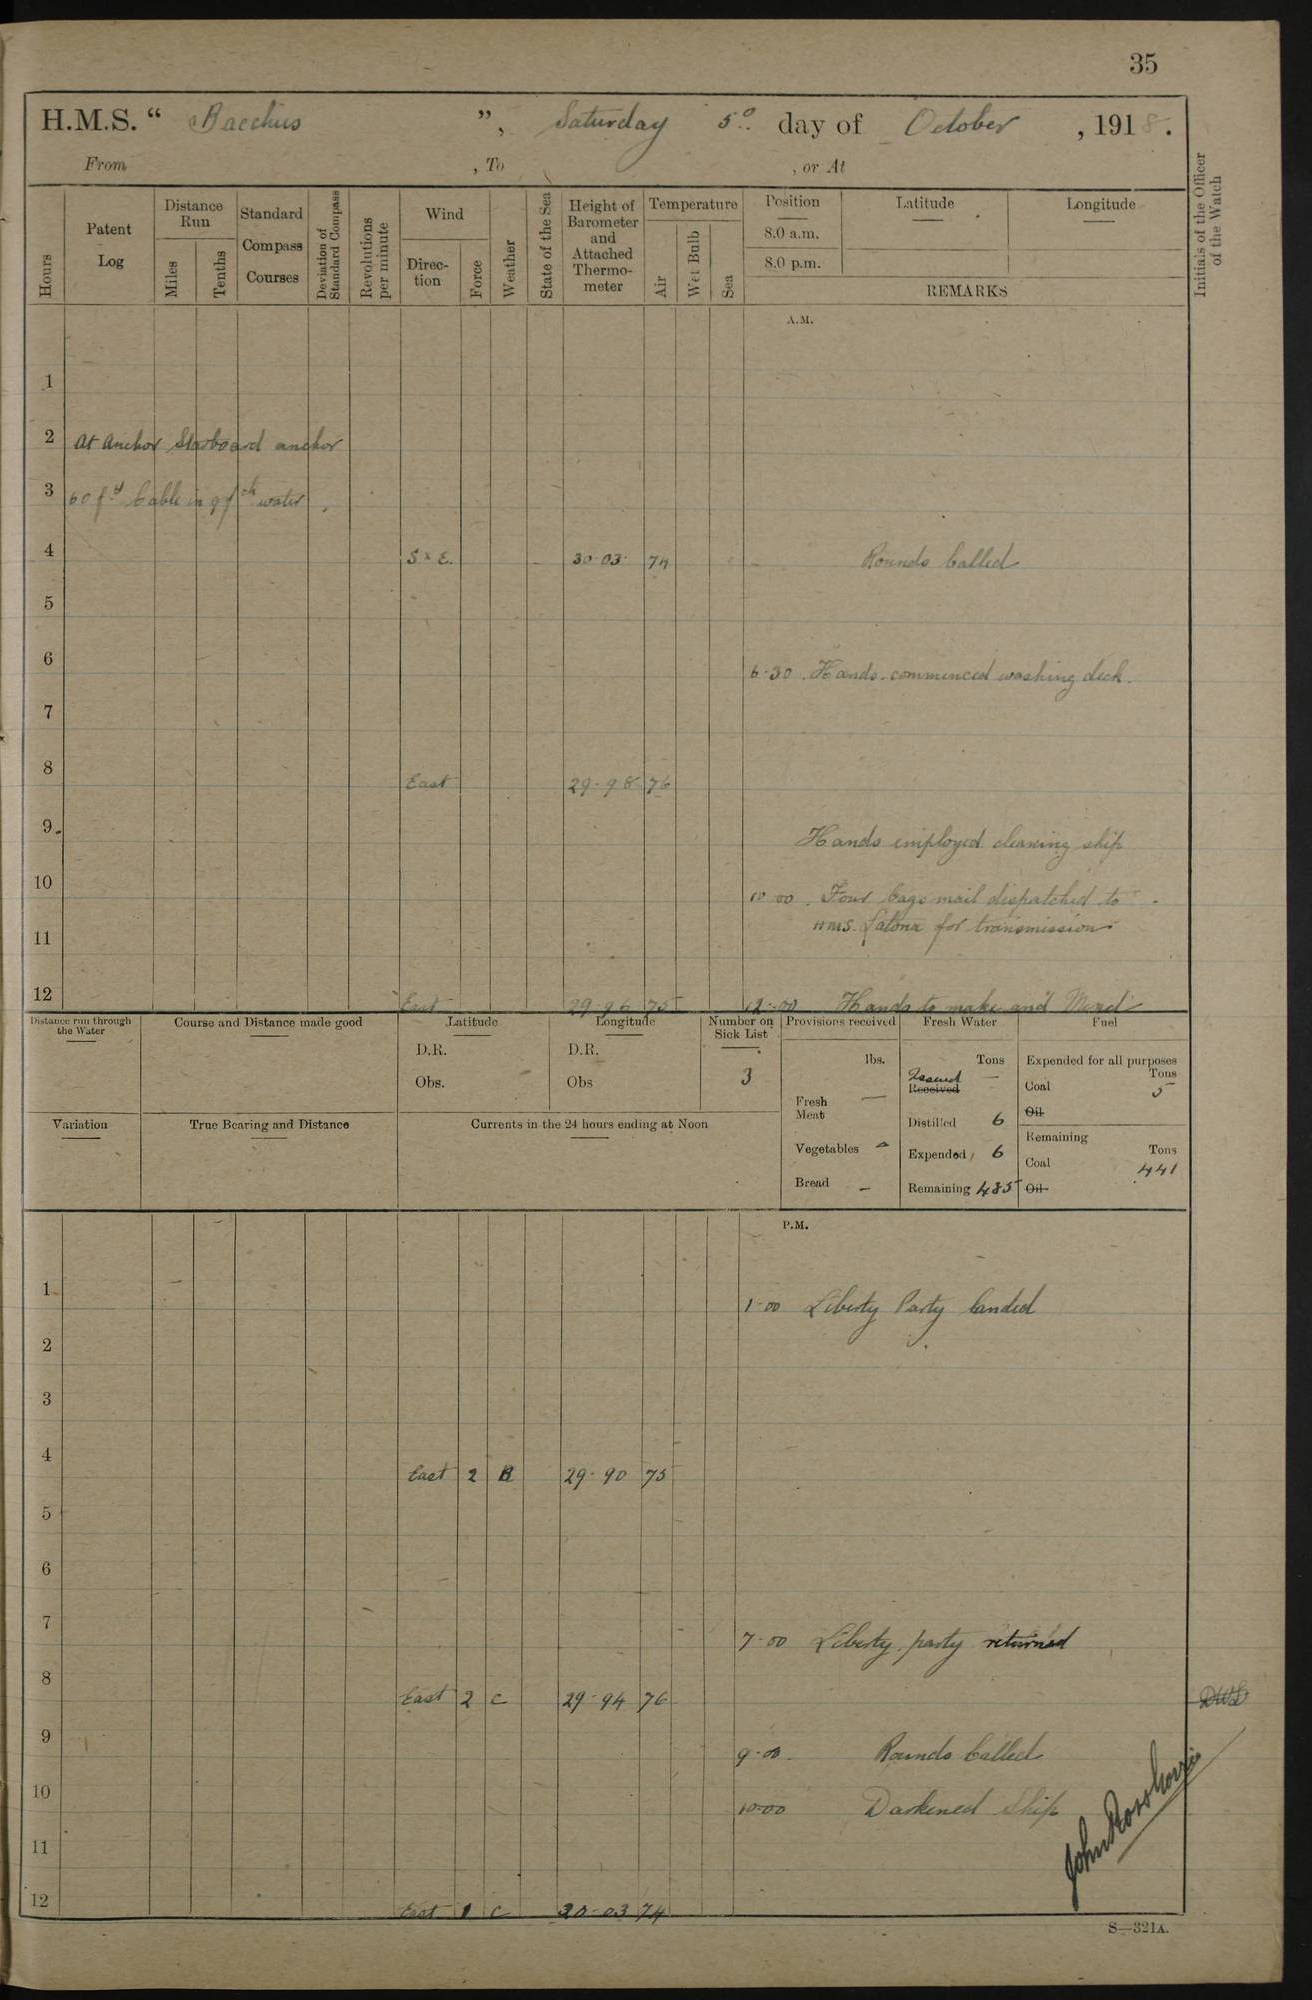 35
H.M.S. “ Bacchus ”, Saturday 5º day of October , 1918.
From , To , or At
Hours
Patent Log
Distance Run
Miles
Tenths
Standard Compass Courses
Deviation of Standard Compass
Revolutions per minute
Wind
Direc-tion
Force
Weather
State of the Sea
Height of Barometer and Attached Thermo-meter
Temperature
Air
Wet Bulb
Sea
Position
8.0 a.m.
8.0 p.m.
Latitude
Longitude
REMARKS
Initials of the Officer of the Watch
A.M.
1
2 At Anchor Starboard anchor
3 60 fᵈ Cable in 9 fᵗʰ water
4 S x E. 30-03 74 Rounds Called
5
6 6-30 . Hands commenced washing deck.
7
8 East 29-98 76
9. Hands employed cleaning ship
10 10 00 . Four bags mail dispatched to
11 HMS. Latona for transmission
12 East 29-96 75 12-00 Hands to make and Mend
Distance run through the Water
Course and Distance made good
Latitude
D.R.
Obs.
Longitude
D.R.
Obs
Number on Sick List
3
Provisions received
lbs.
Fresh Meat —
Vegetables -
Bread —
Fresh Water
Tons
Issued —
Received
Distilled 6
Expended 6
Remaining 485
Fuel
Expended for all purposes
Tons
Coal 5
Oil
Remaining
Tons
Coal 441
Oil
Variation
True Bearing and Distance
Currents in the 24 hours ending at Noon
P.M.
1 1-00 Liberty Party landed
2
3
4 East 2 B 29-90 75
5
6
7 7-00 Liberty party returned
8 East 2 C 29-94 76
9 9-00. Rounds Called
10 10-00 Darkened Ship
11
12 East 1 C 30-03 74
S—321A.